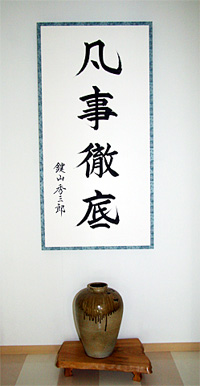 凡事徹底
鍵山秀三郎